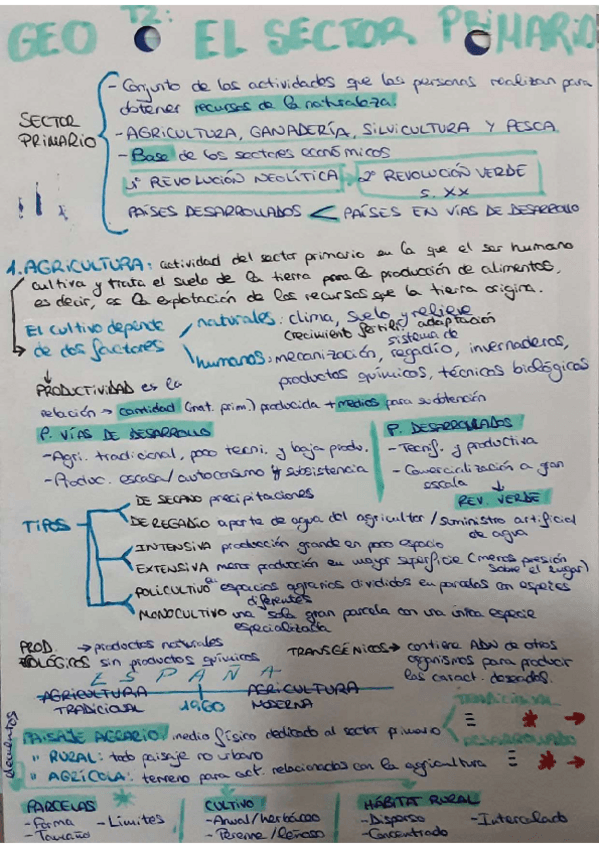 T2:
GEO EL SECTOR PRIMARIO
- Conjunto de las actividades que las personas realizan para
obtener recursos de la naturaleza.
SECTOR
PRIMARIO
- AGRICULTURA, GANADERÍA, SILVICULTURA Y PESCA
- Base de los sectores económicos
1ª REVOLUCIÓN NEOLÍTICA → 2ª REVOLUCIÓN VERDE
S. XX
PAÍSES DESARROLLADOS < PAÍSES EN VÍAS DE DESARROLLO
1. AGRICULTURA: actividad del sector primario en la que el ser humano
cultiva y trata el suelo de la tierra para la producción de alimentos,
es decir, es la explotación de los recursos que la tierra origina.
El cultivo depende
de dos factores
naturales: clima, suelo, y relieve
crecimiento fertili. adaptación
humanos: mecanización, sistema de regadío, invernaderos,
productos químicos, técnicas biológicas
PRODUCTIVIDAD es la
relación → cantidad (mat. prim.) producida + medios para su obtención
P. VÍAS DE DESARROLLO
- Agri. tradicional, poco tecni. y baja produ.
- Produc. escasa/autoconsumo y subsistencia
P. DESARROLLADOS
- Tecnf. y productiva
- Comercialización a gran
escala
REV. VERDE
TIPOS
DE SECANO precipitaciones
DE REGADÍO aporte de agua del agricultor / suministro artificial
de agua
INTENSIVA producción grande en poco espacio
EXTENSIVA menor producción en mayor superficie (menos presión
sobre el lugar)
POLICULTIVO espacios agrarios divididos en parcelas con especies
diferentes
MONOCULTIVO una sola gran parcela con una única especie
especializada
PROD. → productos naturales
BIOLÓGICOS sin productos químicos
TRANSGÉNICOS → contiene ADN de otros
organismos para producir
las caract. deseadas.
ESPAÑA
AGRICULTURA
TRADICIONAL
1960
AGRICULTURA
MODERNA
TRADICIONAL
DESARROLLADO
elementos
PAISAJE AGRARIO: medio físico dedicado al sector primario
" RURAL: todo paisaje no urbano
" AGRÍCOLA: terreno para act. relacionadas con la agricultura
PARCELAS
- Forma - Límites
- Tamaño
CULTIVO
- Anual/herbáceo
- Perenne/leñoso
HÁBITAT RURAL
- Disperso - Intercalado
- Concentrado